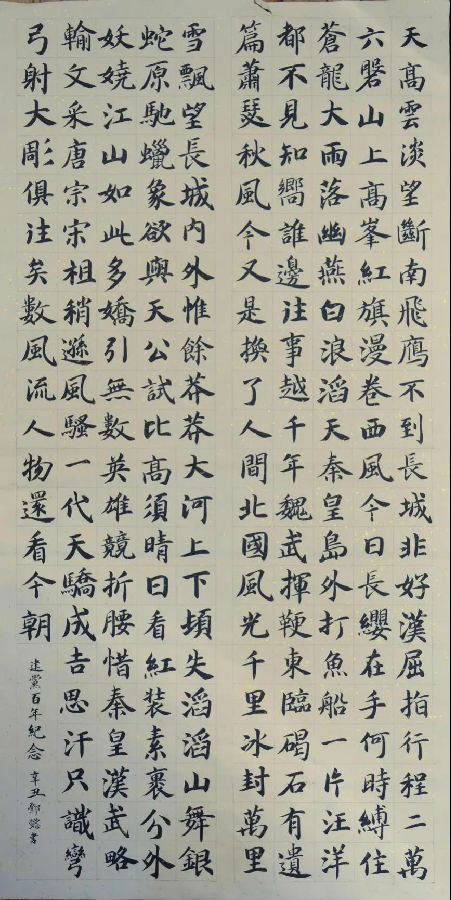 天高雲淡望斷南飛鷹不到長城非好漢屈指行程二萬
六磐山上高峯紅旗漫卷西風今日長纓在手何時縛住
蒼龍大雨落幽燕白浪滔天秦皇島外打魚船一片汪洋
都不見知嚮誰邊往事越千年魏武揮鞭東臨碣石有遺
篇蕭瑟秋風今又是換了人間北國風光千里冰封萬里
雪飄望長城内外惟餘莽莽大河上下頓失滔滔山舞銀
蛇原馳蠟象欲與天公試比高須晴日看紅装素裹分外
妖嬈江山如此多嬌引無數英雄競折腰惜秦皇漢武略
輸文采唐宗宋祖稍遜風騷一代天驕成吉思汗只識彎
弓射大彫俱往矣數風流人物還看今朝
建黨百年紀念 辛丑 書